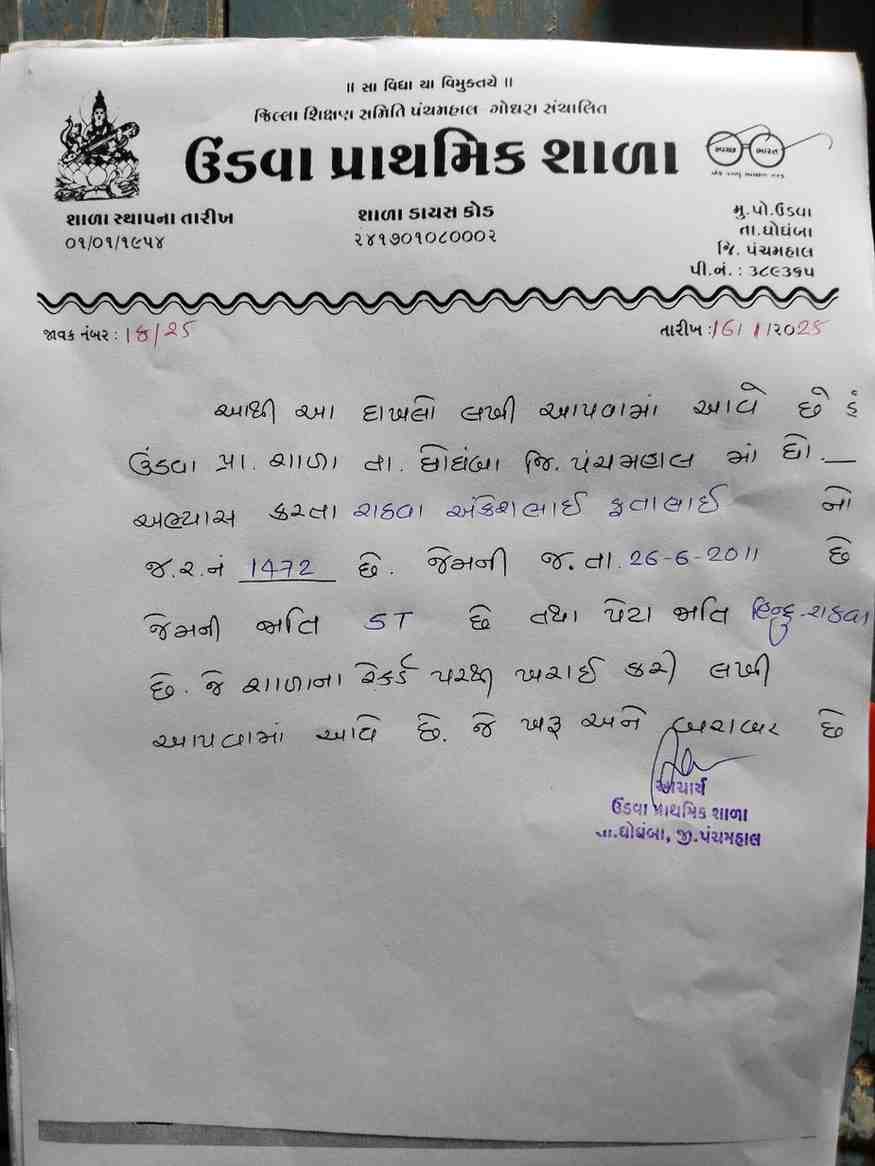 ॥ સા વિદ્યા યા વિમુક્તયે ॥
જિલ્લા શિક્ષણ સમિતિ પંચમહાલ ગોધરા સંચાલિત
ઉંડવા પ્રાથમિક શાળા
સ્વચ્છ ભારત
એક કદમ સ્વચ્છતા તરફ
શાળા સ્થાપના તારીખ
૦૧/૦૧/૧૯૫૪
શાળા ડાયસ કોડ
૨૪૧૭૦૧૦૮૦૦૦૨
મુ.પો.ઉંડવા
તા.ઘોઘંબા
જિ. પંચમહાલ
પી.નં. : ૩૮૯૩૬૫
જાવક નંબર : 18/25
તારીખ :16/1/2025
આથી આ દાખલો લખી આપવામાં આવે છે કે
ઉંડવા પ્રા. શાળા તા. ઘોઘંબા જિ. પંચમહાલ માં ધો. __
અભ્યાસ કરતા રાઠવા અંકેશભાઈ ફતાભાઈ નો
જ.ર.નં 1472 છે. જેમની જ.તા. 26-6-2011 છે
જેમની જાતિ ST છે તથા પેટા જાતિ હિન્દુ-રાઠવા
છે. જે શાળાના રેકર્ડ પરથી ખરાઈ કરી લખી
આપવામાં આવે છે. જે ખરૂ અને બરાબર છે
આચાર્ય
ઉંડવા પ્રાથમિક શાળા
તા.ઘોઘંબા, જી.પંચમહાલ